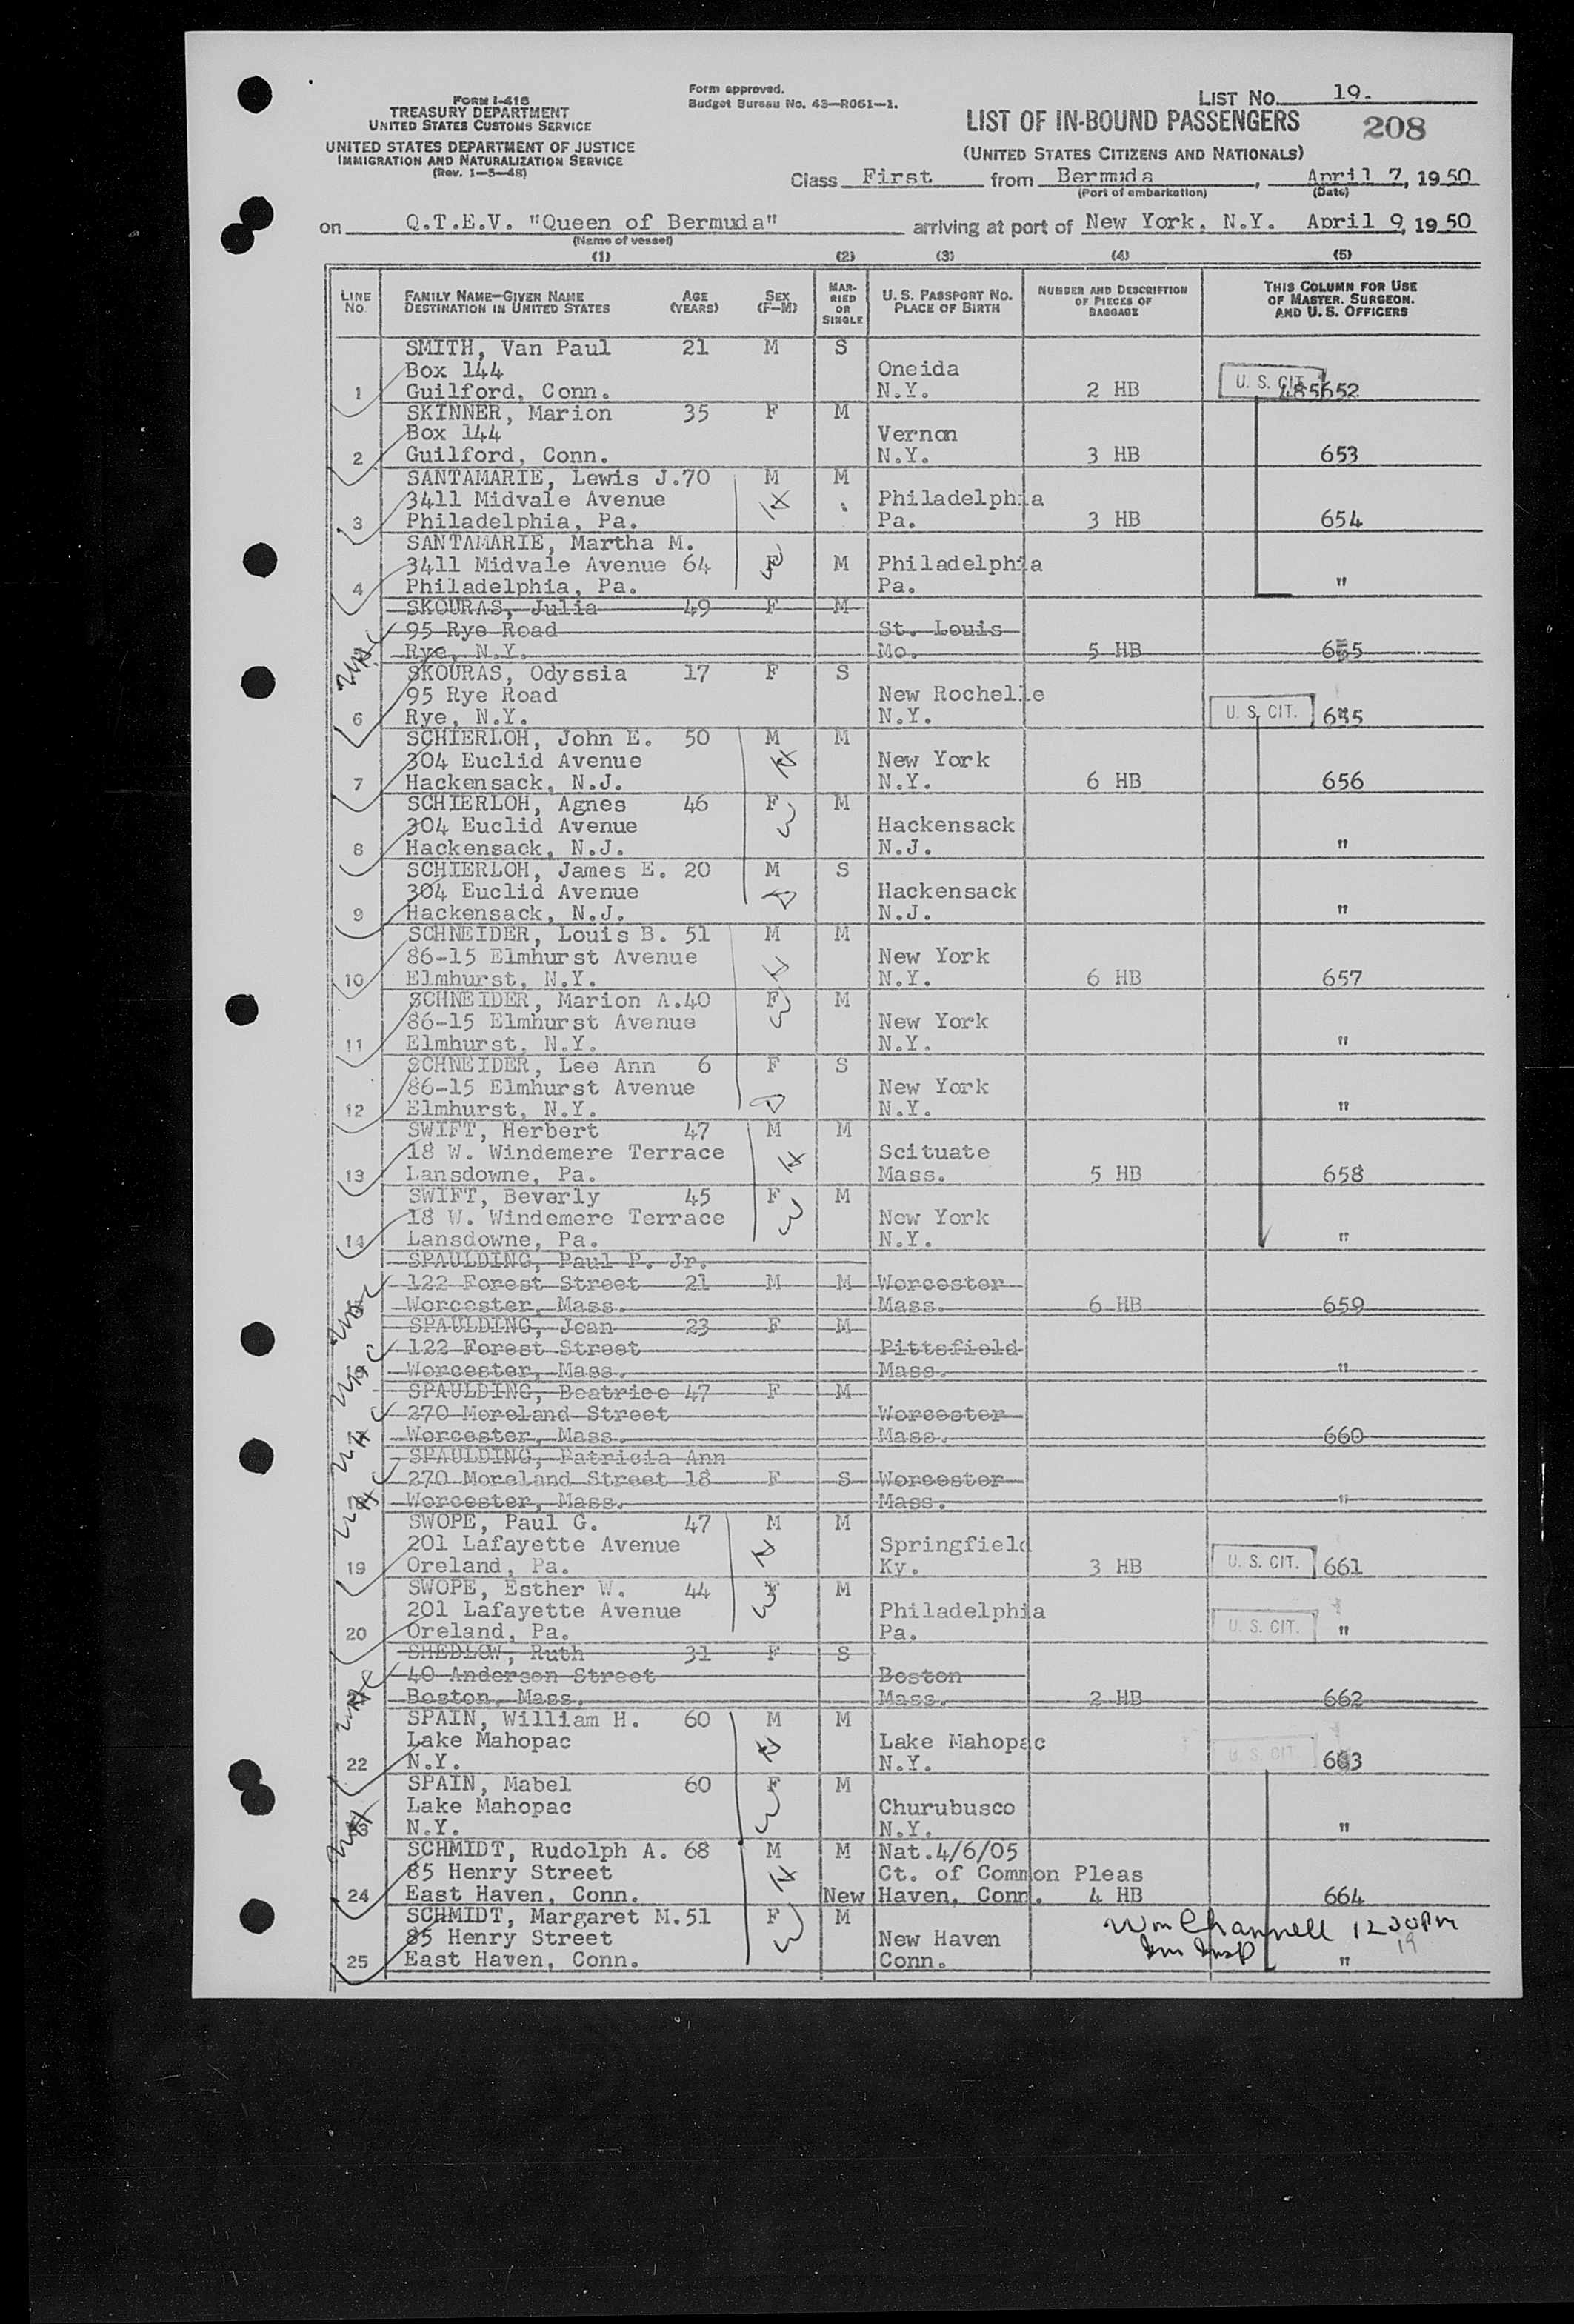 Form I-418
TREASURY DEPARTMENT
UNITED STATES CUSTOMS SERVICE
UNITED STATES DEPARTMENT OF JUSTICE
IMMIGRATION AND NATURALIZATION SERVICE
(Rev. 1-5-48)
Form approved.
Budget Bureau No. 43-R061-1.
LIST No. 19.
LIST OF IN-BOUND PASSENGERS 208
(UNITED STATES CITIZENS AND NATIONALS)
Class First from Bermuda, April 7, 1950
(Port of embarkation) (Date)
on Q.T.E.V. "Queen of Bermuda" arriving at port of New York, N.Y. April 9, 1950
(Name of vessel)
(1) (2) (3) (4) (5)
LINE No. FAMILY NAME—GIVEN NAME DESTINATION IN UNITED STATES AGE (YEARS) SEX (F—M) MARRIED OR SINGLE U. S. PASSPORT NO. PLACE OF BIRTH NUMBER AND DESCRIPTION OF PIECES OF BAGGAGE THIS COLUMN FOR USE OF MASTER, SURGEON, AND U. S. OFFICERS
SMITH, Van Paul 21 M S
Box 144 Oneida
1 Guilford, Conn. N.Y. 2 HB U. S. CIT. 485652
SKINNER, Marion 35 F M
Box 144 Vernon
2 Guilford, Conn. N.Y. 3 HB 653
SANTAMARIE, Lewis J. 70 M M
3411 Midvale Avenue H Philadelphia
3 Philadelphia, Pa. Pa. 3 HB 654
SANTAMARIE, Martha M.
3411 Midvale Avenue 64 F M Philadelphia
4 Philadelphia, Pa. W Pa. "
SKOURAS, Julia 49 F M
95 Rye Road St. Louis
Rye, N.Y. Mo. 5 HB 655
SKOURAS, Odyssia 17 F S
95 Rye Road New Rochelle
6 Rye, N.Y. N.Y. U. S. CIT. 655
SCHIERLOH, John E. 50 M M
304 Euclid Avenue H New York
7 Hackensack, N.J. N.Y. 6 HB 656
SCHIERLOH, Agnes 46 F M
304 Euclid Avenue W Hackensack
8 Hackensack, N.J. N.J. "
SCHIERLOH, James E. 20 M S
304 Euclid Avenue D Hackensack
9 Hackensack, N.J. N.J. "
SCHNEIDER, Louis B. 51 M M
86-15 Elmhurst Avenue H New York
10 Elmhurst, N.Y. N.Y. 6 HB 657
SCHNEIDER, Marion A. 40 F M
86-15 Elmhurst Avenue W New York
11 Elmhurst, N.Y. N.Y. "
SCHNEIDER, Lee Ann 6 F S
86-15 Elmhurst Avenue New York
12 Elmhurst, N.Y. D N.Y. "
SWIFT, Herbert 47 M M
18 W. Windemere Terrace H Scituate
13 Lansdowne, Pa. Mass. 5 HB 658
SWIFT, Beverly 45 F M
18 W. Windemere Terrace W New York
14 Lansdowne, Pa. N.Y. "
SPAULDING, Paul P. Jr.
122 Forest Street 21 M M Worcester
Worcester, Mass. Mass. 6 HB 659
SPAULDING, Jean 23 F M
122 Forest Street Pittsfield
Worcester, Mass. Mass. "
SPAULDING, Beatrice 47 F M
270 Moreland Street Worcester
Worcester, Mass. Mass. 660
SPAULDING, Patricia Ann
270 Moreland Street 18 F S Worcester
Worcester, Mass. Mass. "
SWOPE, Paul G. 47 M M
201 Lafayette Avenue H Springfield
19 Oreland, Pa. Ky. 3 HB U. S. CIT. 661
SWOPE, Esther W. 44 F M
201 Lafayette Avenue W Philadelphia
20 Oreland, Pa. Pa. U. S. CIT. "
SHEDLOW, Ruth 31 F S
40 Anderson Street Boston
Boston, Mass. Mass. 2 HB 662
SPAIN, William H. 60 M M
Lake Mahopac H Lake Mahopac
22 N.Y. N.Y. U. S. CIT. 663
SPAIN, Mabel 60 F M
Lake Mahopac W Churubusco
N.Y. N.Y. "
SCHMIDT, Rudolph A. 68 M M Nat.4/6/05
85 Henry Street H Ct. of Common Pleas
24 East Haven, Conn. New Haven, Conn. 4 HB 664
SCHMIDT, Margaret M. 51 F M Wm Channell 12 30 PM
85 Henry Street W New Haven Imm Insp 19
25 East Haven, Conn. Conn. "